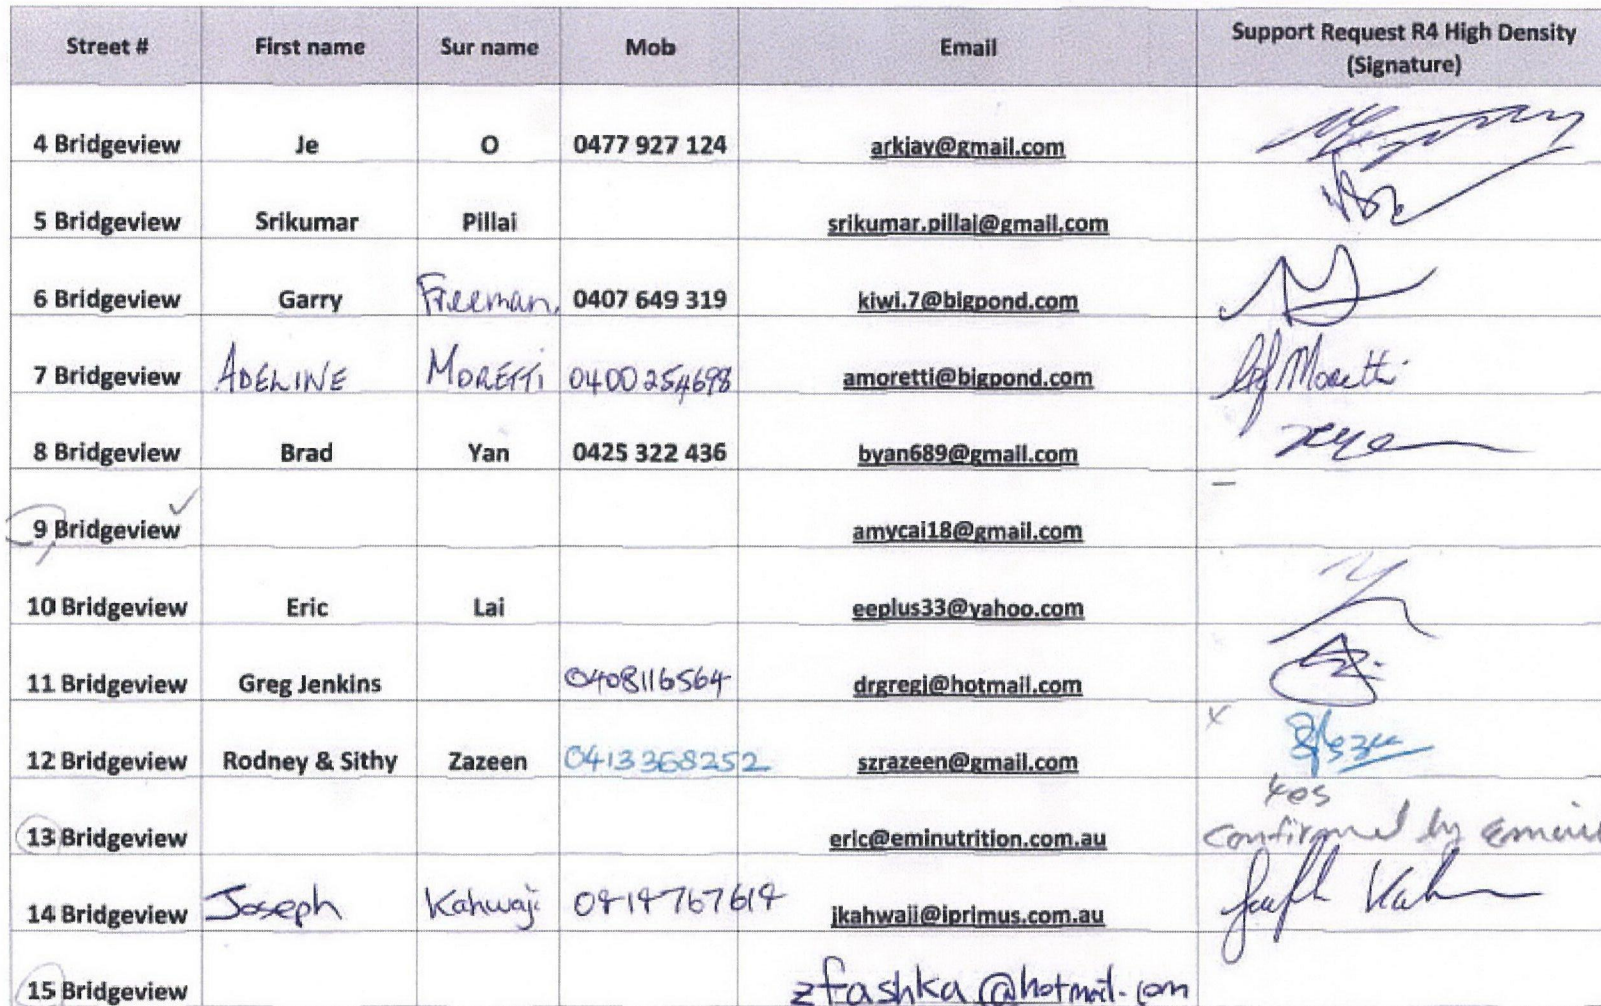 Street # First name Sur name Mob Email Support Request R4 High Density (Signature)
4 Bridgeview Je O 0477 927 124 arkjay@gmail.com
5 Bridgeview Srikumar Pillai srikumar.pillai@gmail.com
6 Bridgeview Garry Freeman. 0407 649 319 kiwi.7@bigpond.com
7 Bridgeview ADELINE MORETTI 0400254698 amoretti@bigpond.com Moretti
8 Bridgeview Brad Yan 0425 322 436 byan689@gmail.com
9 Bridgeview amycai18@gmail.com
10 Bridgeview Eric Lai eeplus33@yahoo.com
11 Bridgeview Greg Jenkins 0408116564 drgregj@hotmail.com
12 Bridgeview Rodney & Sithy Zazeen 0413368252 szrazeen@gmail.com
yes
13 Bridgeview eric@eminutrition.com.au confirmed by email
14 Bridgeview Joseph Kahwaji 0414767614 jkahwaji@iprimus.com.au
15 Bridgeview zfashka@hotmail.com